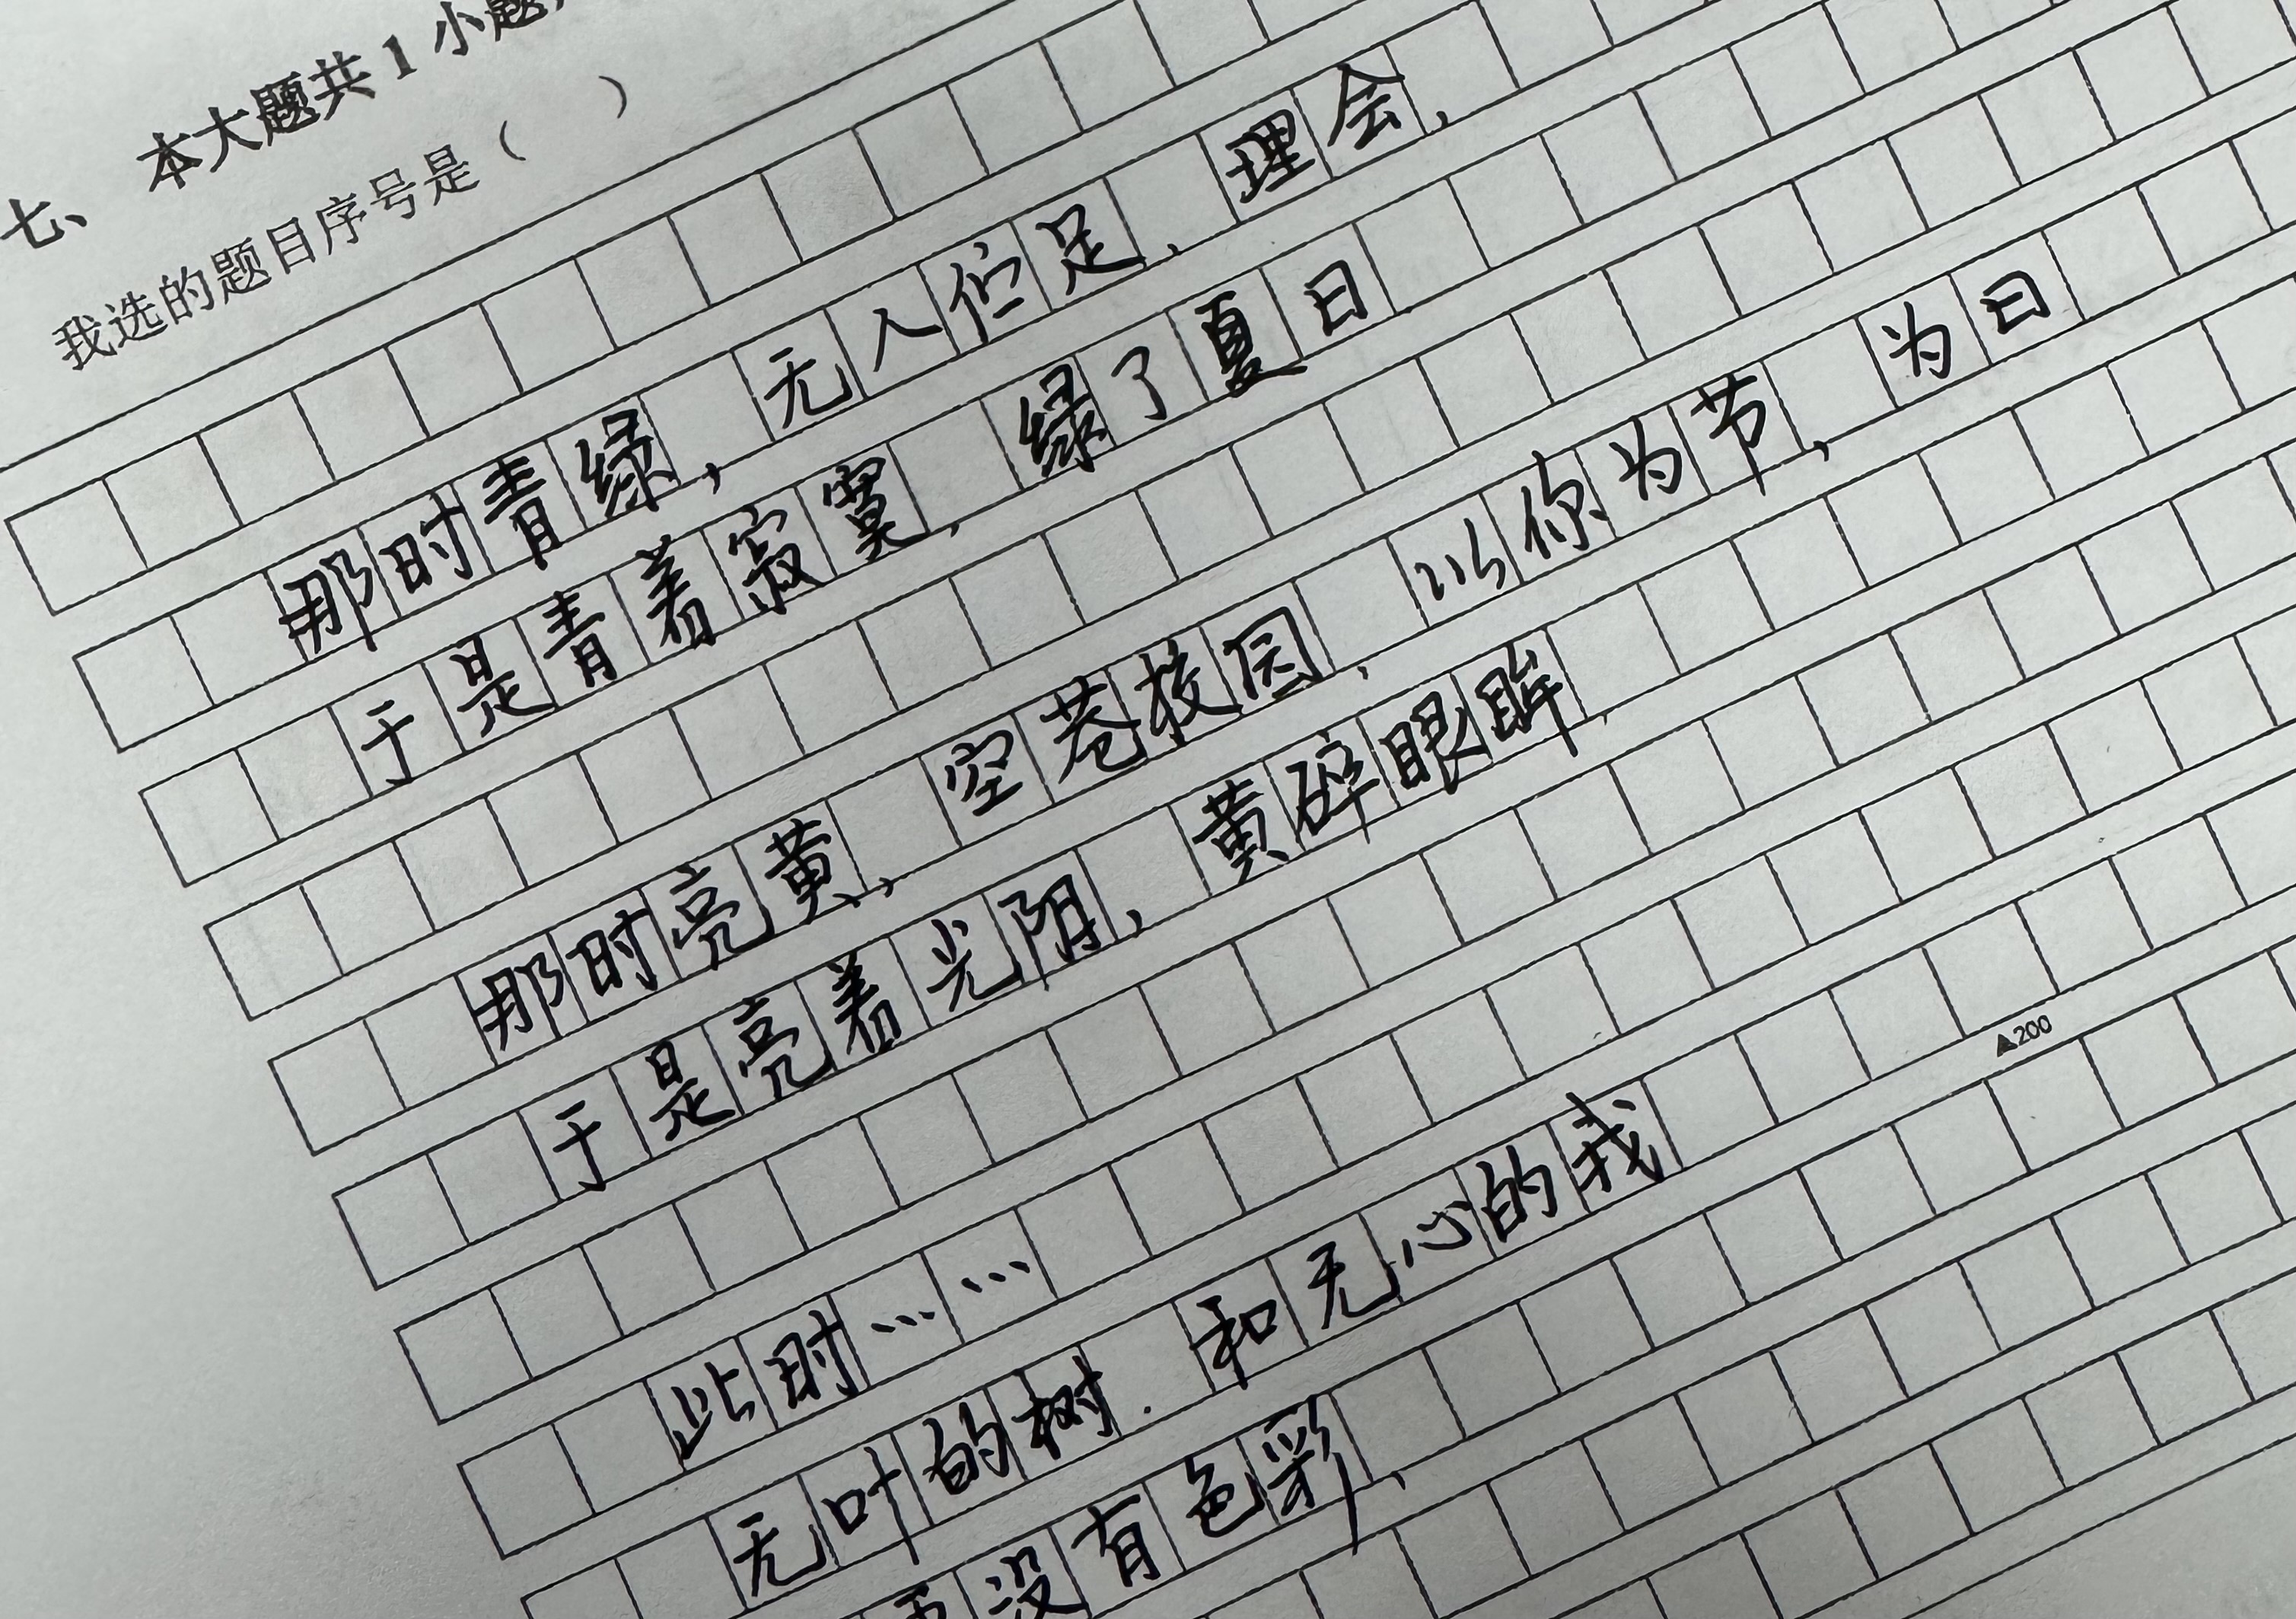 七、 本大题共1小题
我选的题目序号是（ ）
那时青绿，无人伫足，理会，
于是青着寂寞，绿了夏日
那时亮黄，空巷校园，以你为节，为日
于是亮着光阴，黄碎眼眸
此时……
无叶的树．和无心的我
再没有色彩、
▲200